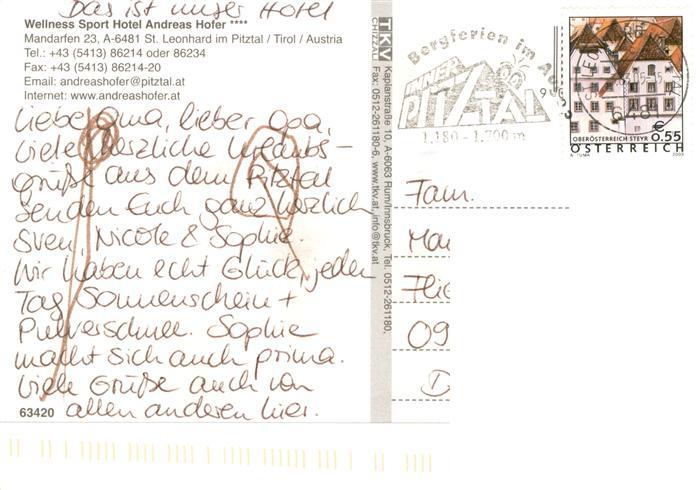 Das ist unser Hotel
Wellness Sport Hotel Andreas Hofer ****
Mandarfen 23, A-6481 St. Leonhard im Pitztal / Tirol / Austria
Tel.: +43 (5413) 86214 oder 86234
Fax: +43 (5413) 86214-20
Email: andreashofer@pitztal.at
Internet: www.andreashofer.at
Liebe Oma, lieber Opa,
viele herzliche Urlaubs-
grüße aus dem Pitztal
senden Euch ganz herzlich
Sven, Nicole & Sophie.
Wir haben echt Glück, jeden
Tag Sonnenschein +
Pulverschnee. Sophie
macht sich auch prima.
Viele Grüße auch von
allen anderen hier.
63420
TKV
Kaplanstraße 10, A-6063 Rum/Innsbruck, Tel. 0512-261180,
Fax: 0512-261180-6, www.tkv.at, info@tkv.at
Bergferien im
INNER
PITZTAL
1.180 - 1.700 m
OBERÖSTERREICH STEYR
€ 0.55
ÖSTERREICH
2003
Fam.
Ma
Flie
09
D